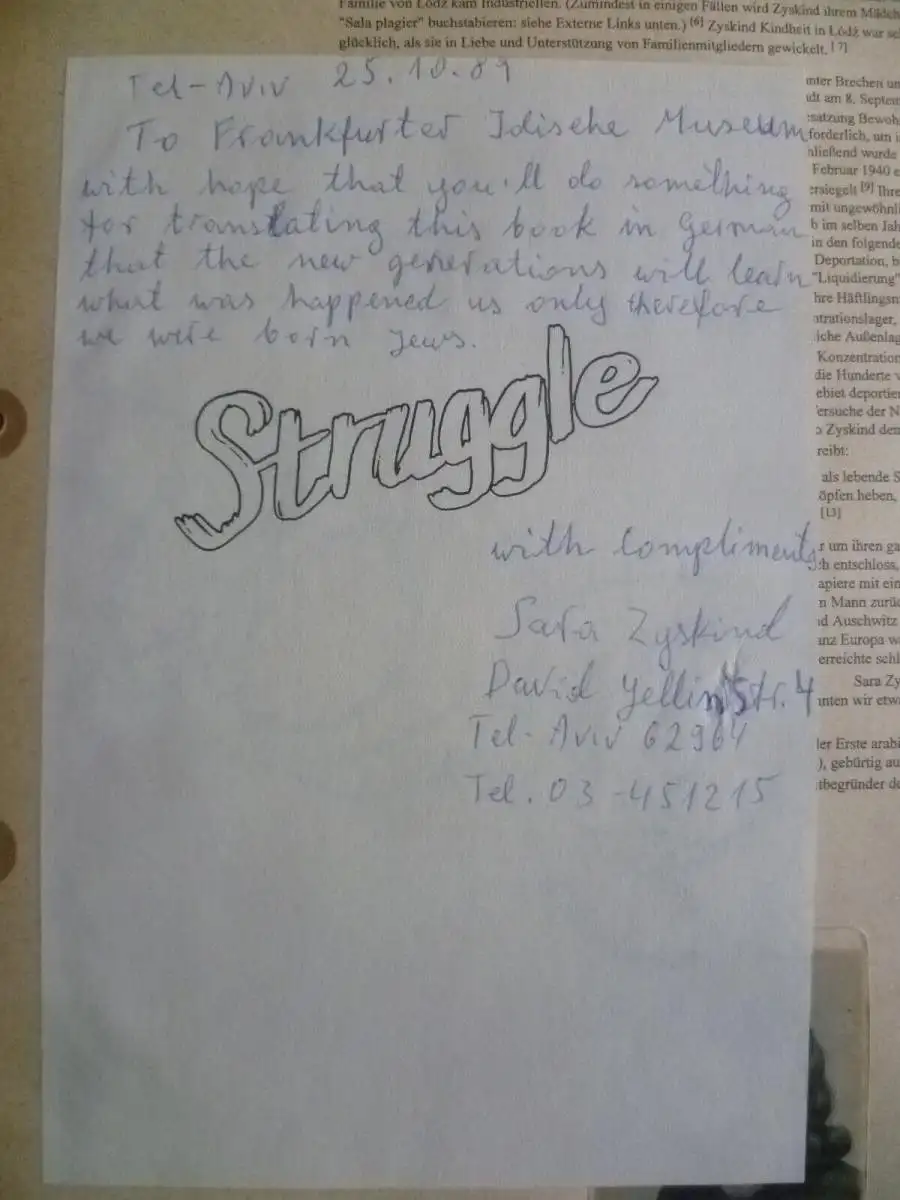 Familie von Łódź kam Industriellen. (Zumindest in einigen Fällen wird Zyskind ihrem Mädch
"Sala plagier" buchstabieren: siehe Externe Links unten.) [6] Zyskind Kindheit in Łódź war se
glücklich, als sie in Liebe und Unterstützung von Familienmitgliedern gewickelt. [7]
Tel-Aviv 25.10.89
To Frankfurter Idische Museum
with hope that you'll do something
for translating this book in German
that the new generations will learn
what was happened us only therefore
we were born jews.
Struggle
with compliments
Sara Zyskind
David Yellin Str. 4
Tel-Aviv 62964
Tel. 03-451215
nter Brechen un
dt am 8. Septem
satzung Bewoh
forderlich, um i
hließend wurde
Februar 1940 e
ersiegelt [9] Ihre
mit ungewöhnli
b im selben Jah
in den folgende
Deportation, b
"Liquidierung"
hre Häftlingsn
ntrationslager,
iche Außenlag
Konzentration
die Hunderte v
ebiet deportier
ersuche der N
Zyskind den
reibt:
als lebende S
öpfen heben,
[13]
r um ihren ga
h entschloss,
apiere mit ein
n Mann zurüc
d Auschwitz
anz Europa w
erreichte schl
Sara Zy
nten wir etw
ler Erste arabi
), gebürtig au
tbegründer de